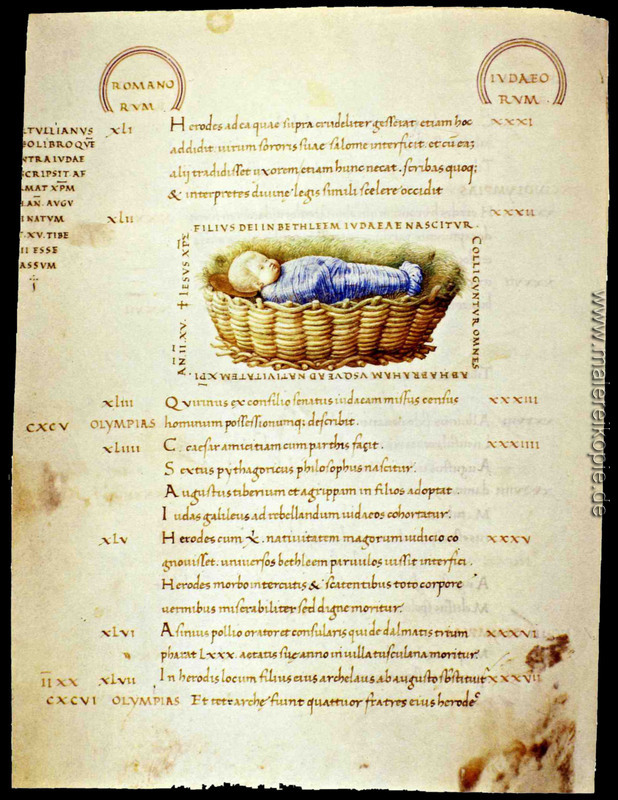 ROMANO
RVM
IVDAEO
RVM
TVLLIANVS
LIBRO QVE
NTRA IVDAE
SCRIPSIT AF
MAT XP̄M
AN̄. AVGV
NATVM
XV. TIBE
II ESSE
ASSVM
XLI Herodes ad ea quae supra crudeliter gesserat, etiam hoc XXXI
addidit. virum sororis suae salome interficit. et cū ea;
alii tradidisset uxorem, etiam hunc necat. scribas quoq;
& interpretes divinę legis simili scelere occidit
XLII XXXII
FILIVS DEI IN BETHLEEM IVDAEAE NASCITVR.
COLLIGVNTVR OMNES
AB HABRAHAM VSQVE AD NATIVITATEM XP̄I
AN̄. II. XV. † IESVS XP̄S
XLIII Quirinus ex consilio senatus iudaeam missus census XXXIII
CXCV OLYMPIAS hominum possessionumq; describit.
XLIIII C. caesar amicitiam cum parthis facit. XXXIIII
Sextus pythagoricus philosophus nascitur.
Augustus tiberium et agrippam in filios adoptat
Iudas galileus ad rebellandum iudaeos cohortatur.
XLV Herodes cum x̄. nativitatem magorum iudicio co XXXV
gnovisset. universos bethleem parvulos iussit interfici.
Herodes morbo intercutis & scatentibus toto corpore
vermibus miserabiliter sed digne moritur.
XLVI Asinius pollio orator et consularis qui de dalmatis trium XXXVI
pharat LXXX. aetatis suę anno in villa tusculana moritur.
II XX XLVII In herodis locum filius eius archelaus ab augusto sbstituit XXXVII
CXCVI OLYMPIAS Et tetrarchę fiunt quattuor fratres eius herode
www.malereikopie.de